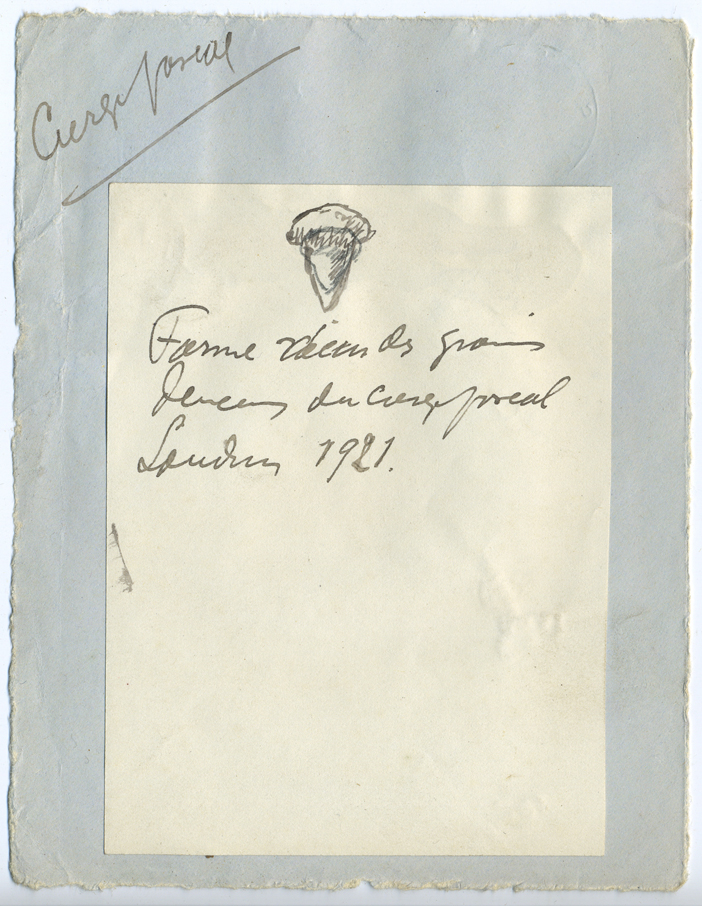 Cierge pascal
Forme des grains
d'encens du cierge pascal
Londres 1921.